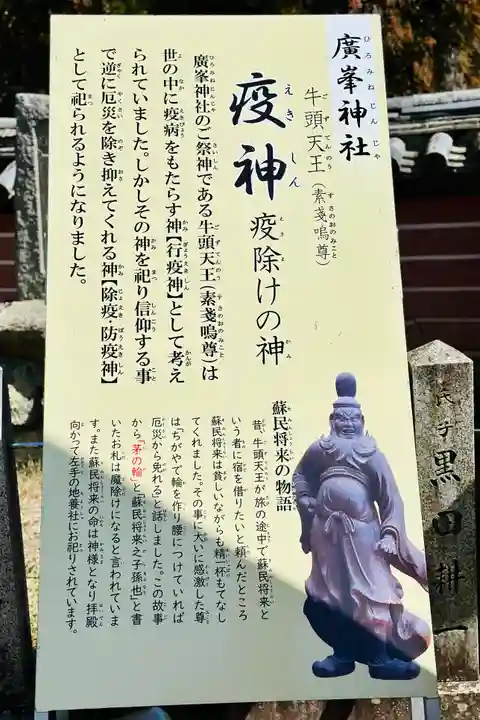 廣峯神社
ひろみねじんじゃ
牛頭天王(素戔嗚尊)
ごずてんのう すさのおのみこと
疫神
えきしん
疫除けの神
えきよ かみ
廣峯神社のご祭神である牛頭天王(素戔嗚尊)は
世の中に疫病をもたらす神【行疫神】として考え
られていました。しかしその神を祀り信仰する事
で逆に厄災を除き抑えてくれる神【除疫・防疫神】
として祀られるようになりました。
蘇民将来の物語
昔、牛頭天王が旅の途中で蘇民将来と
いう者に宿を借りたいと頼んだところ
蘇民将来は貧しいながらも精一杯もてなし
てくれました。その事に大いに感激した尊
は「ちがやで輪を作り腰につけていれば
厄災から免れる」と話しました。この故事
から「茅の輪」と「蘇民将来之子孫也」と書
いたお札は魔除けになると言われていま
す。また蘇民将来の命は神様となり拝殿
向かって左手の地養社にお祀りされています。
氏子 黒田耕一